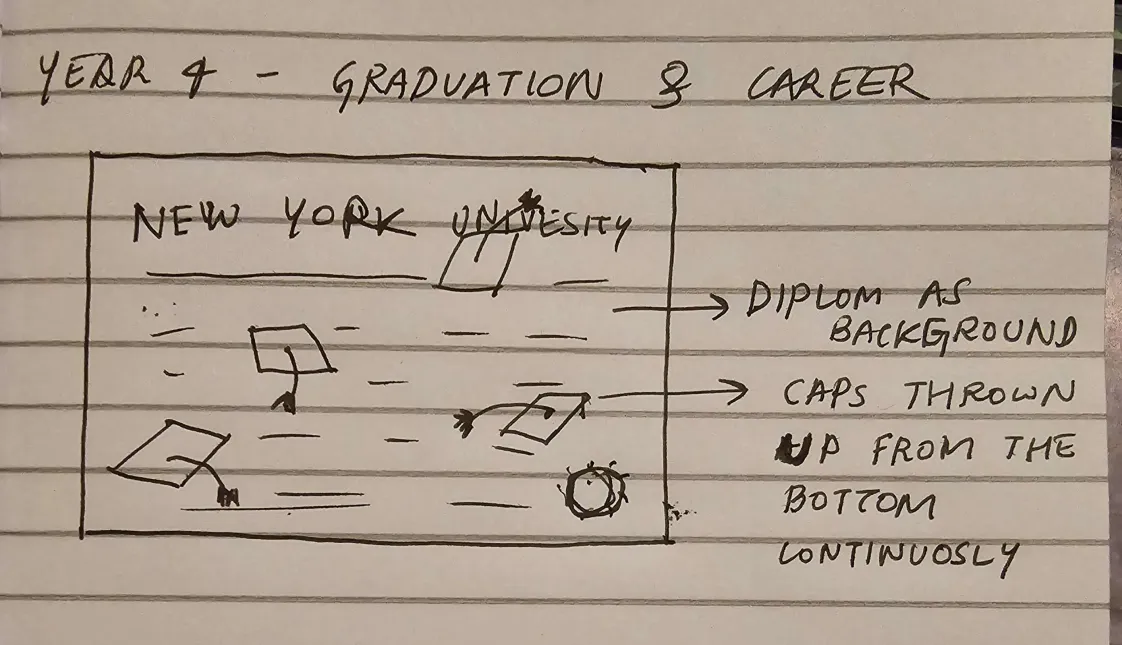 YEAR 4 - GRADUATION & CAREER
NEW YORK UNIVESITY
DIPLOM AS
BACKGROUND
CAPS THROWN
UP FROM THE
BOTTOM
CONTINUOSLY